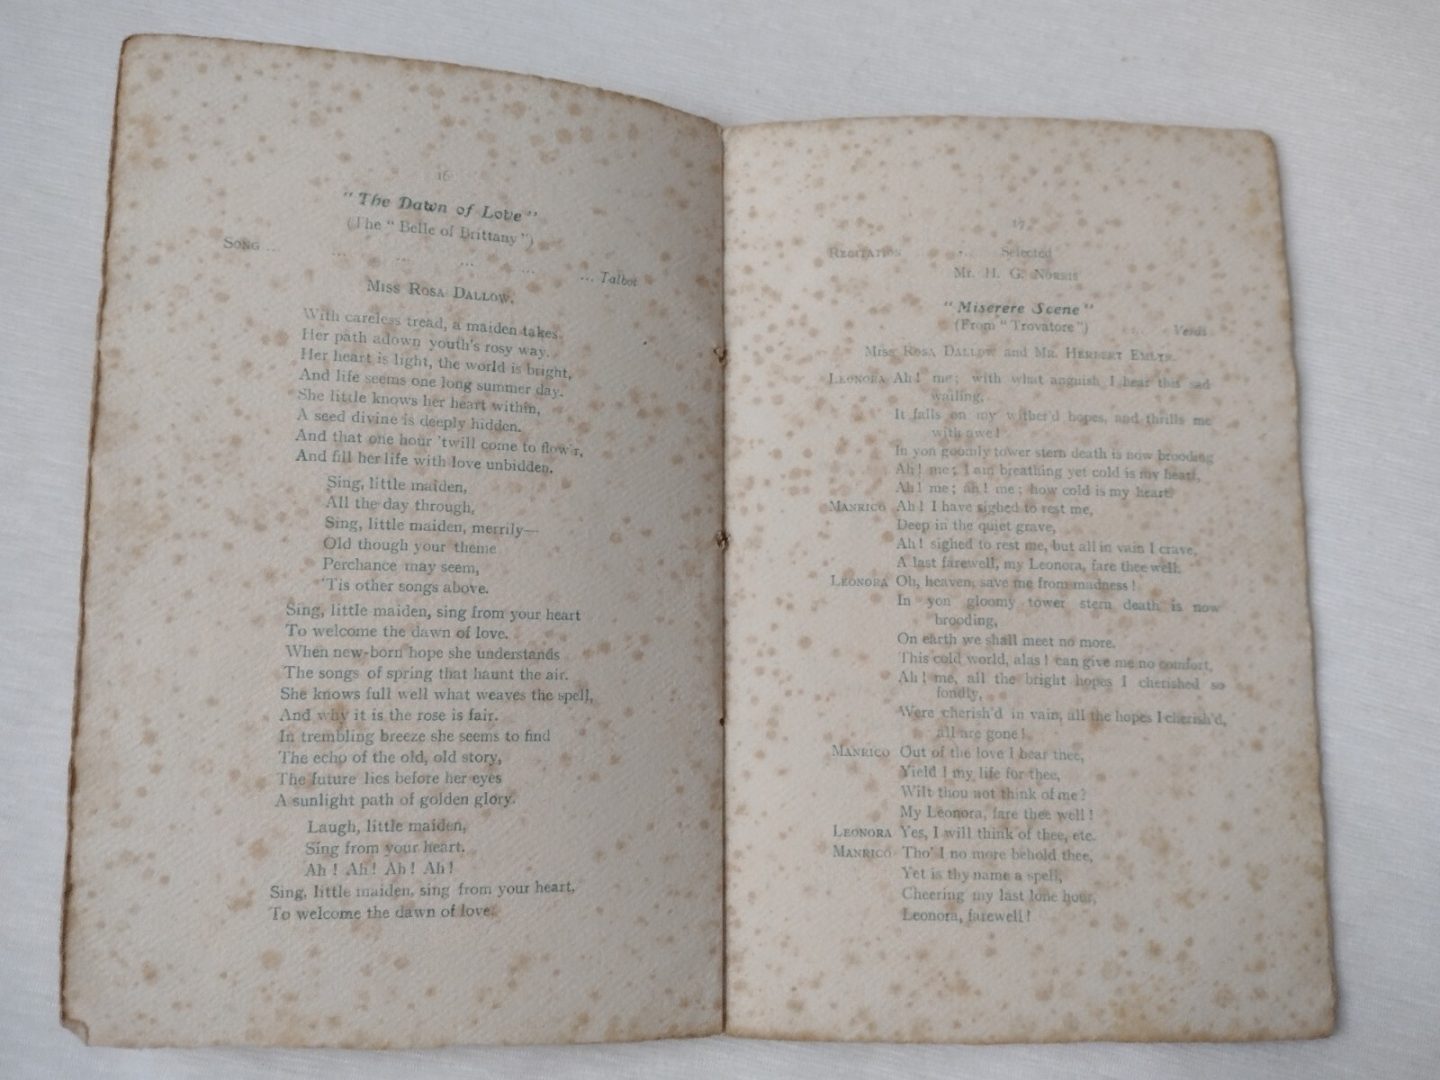 16
"The Dawn of Love"
(The "Belle of Brittany")
SONG ... ... ... ... ... ... Talbot
MISS ROSA DALLOW.
With careless tread, a maiden takes.
Her path adown youth's rosy way.
Her heart is light, the world is bright,
And life seems one long summer day.
She little knows her heart within,
A seed divine is deeply hidden.
And that one hour 'twill come to flow'r,
And fill her life with love unbidden.
Sing, little maiden,
All the day through,
Sing, little maiden, merrily—
Old though your theme
Perchance may seem,
'Tis other songs above.
Sing, little maiden, sing from your heart
To welcome the dawn of love.
When new-born hope she understands
The songs of spring that haunt the air.
She knows full well what weaves the spell,
And why it is the rose is fair.
In trembling breeze she seems to find
The echo of the old, old story,
The future lies before her eyes
A sunlight path of golden glory.
Laugh, little maiden,
Sing from your heart.
Ah! Ah! Ah! Ah!
Sing, little maiden, sing from your heart,
To welcome the dawn of love.
17
RECITATION ... Selected
Mr. H. G. NORRIS
"Miserere Scene"
(From "Trovatore") ... Verdi
MISS ROSA DALLOW and MR. HERBERT EMLYN.
LEONORA Ah! me; with what anguish I hear this sad
wailing,
It falls on my wither'd hopes, and thrills me
with awe!
In yon goomly tower stern death is now brooding
Ah! me; I am breathing yet cold is my heart,
Ah! me; ah! me; how cold is my heart.
MANRICO Ah! I have sighed to rest me,
Deep in the quiet grave,
Ah! sighed to rest me, but all in vain I crave,
A last farewell, my Leonora, fare thee well.
LEONORA Oh, heaven, save me from madness!
In yon gloomy tower stern death is now
brooding,
On earth we shall meet no more.
This cold world, alas! can give me no comfort,
Ah! me, all the bright hopes I cherished so
fondly,
Were cherish'd in vain, all the hopes I cherish'd,
all are gone!
MANRICO Out of the love I bear thee,
Yield I my life for thee,
Wilt thou not think of me?
My Leonora, fare thee well!
LEONORA Yes, I will think of thee, etc.
MANRICO Tho' I no more behold thee,
Yet is thy name a spell,
Cheering my last lone hour,
Leonora, farewell!